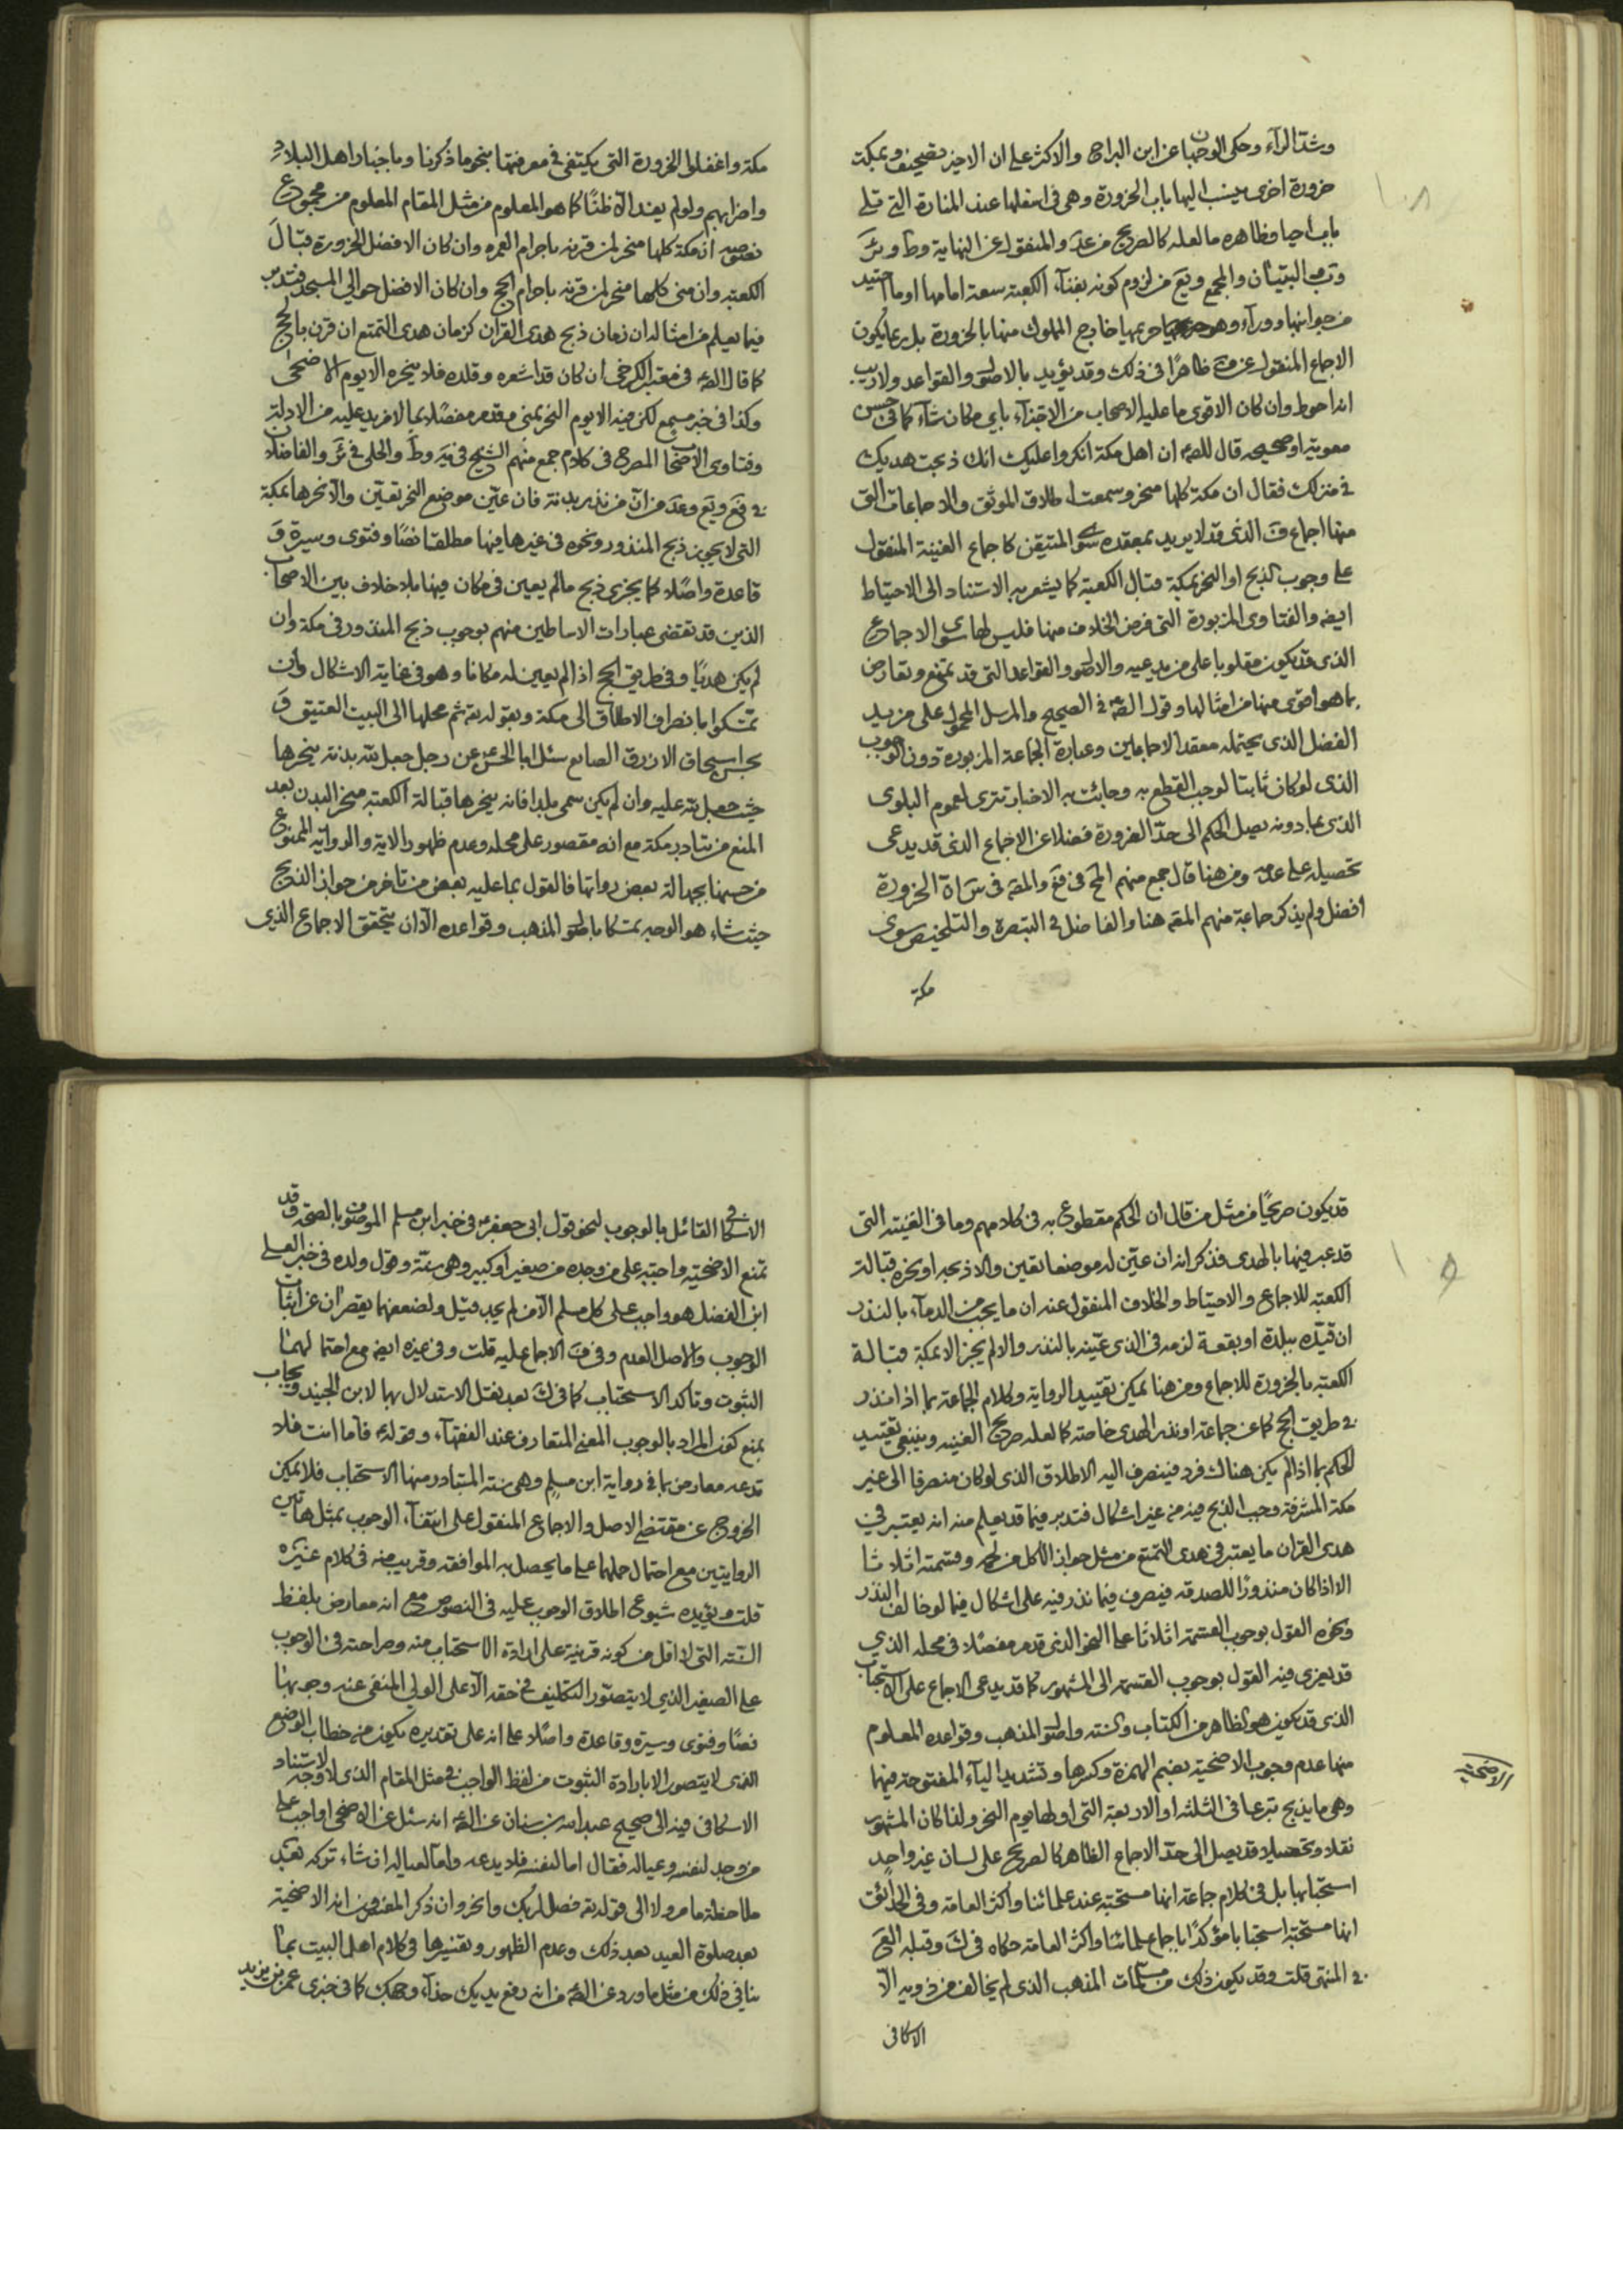 وشد الراء وحكى الوجهان عن ابن البراج والاكثر على ان الاخير تصحيف وبمكة
خرورة اخرى ينسب اليها باب الحزورة وهى فى اسفلها عند المنارة التى تلى
باب اجيا وظاهره ما لعله كالصريح من عد والمنقول عن النهاية وط وئر
الكعبة سعة امامها او ما
من جوانبها وورآء خارج المملوك منها بالحزورة بل ربما يكون
الاجماع المنقول عن ظاهرا فى ذلك وقد يؤيد بالاصل والقواعد ولا ريب
انه احوط وان كان الاقوى ما عليه الاصحاب من الاجتزاء باى مكان شآء كما فى حسن
معوية او صحيحه قال للصه ان اهل مكة انكروا عليك انك ذبحت هديك
فى منزلك فقال ان مكة كلها منحر وسمعت اطلاق الموثق والاجماعات التى
منها اجماع الذى قد لا يريد بمعقده سوى المتيقن كاجماع الغنية المنقول
على وجوب الذبح او النحر بمكة قبال الكعبة كما يشعر به الاستناد الى الاحتياط
ايضه والفتاوى المزبورة التى فرض الخلاف منها فليس لها سوى الاجماع
الذى قد يكون مقلوبا على مزيد عيه والاصل والقواعد التى قد تمنع وتعارض
بما هو اقوى منها من امثالها وقول الصه فى الصحيح والمرسل المحمول على مزيد
الفضل الذى يحتمله معقد الاجماعين وعبارة الجماعة المزبورة دون الوجوب
الذى لو كان ثابتا لوجب القطع به وجائت به الاخبار تترى لعموم البلوى
الذى بما دونه يصل الحكم الى حد الضرورة فضلا عن الاجماع الذى قد يدعى
تحصيله على عدمه ومن هنا قال جمع منهم المح فى فع والمصه فى الحزورة
افضل ولم يذكر جماعة منهم المصه هنا والفاضل فى التبصرة والتلخيص سوى
مكة
مكة واغفلوا الحزورة التى يكتفى فى معرفتها بنحو ما ذكرنا وباخبار اهل البلاد
واضرابهم ولو لم يفد الا ظنا كما هو المعلوم من مثل المقام المعلوم من مجموع
نصوصه ان مكة كلها منحر لمن قرنه باحرام العمره وان كان الافضل الحزورة قبال
الكعبة وان منى كلها منحر لمن قرنه باحرام الحج وان كان الافضل حوالى المسجد فتدبر
فيما يعلم من امثاله ان زمان ذبح هدى القران كزمان هدى التمتع ان قرن بالحج
كما قال الصه فى معتبر الكرخى ان كان قد اشعره وقلده فلا ينحره الا يوم الاضحى
وكذا فى خبر مسمع لكن فيه الا يوم النحر بمنى مقدم مفصلا بما لا مزيد عليه من الادلة
وفتاوى الاصحاب المصرح فى كلام جمع منهم الشيخ فى يه وط والحلى فى ئر والفاضلان
فى فع ويع وعد من ان من نذر بدنة فان عين موضع النحر تعين والا نحرها بمكة
التى لا يجوز ذبح المنذور ونحوه فى غيرها فيها مطلقا نصا وفتوى وسيرة و
قاعدة واصلا كما يجزى ذبح ما لم يعين فى مكان فيها بلا خلاف بين الاصحاب
الذين قد تقتضى عبارات الاساطين منهم بوجوب ذبح المنذور فى مكة وان
لم يكن هديا وفى طريق الحج اذا لم يعين له مكانا وهو فى غاية الاشكال وان
تمسكوا بانصراف الاطلاق الى مكة وبقوله تعه ثم محلها الى البيت العتيق و
بحسن اسحاق الازرق الصايغ سئل ابا الحسن عن رجل جعل لله بدنة ينحرها
حيث جعل لله عليه وان لم يكن سمى بلدا فانه ينحرها قبالة الكعبة منحر البدن بعد
المنع من تبادر مكة مع انه مقصور على محله وعدم ظهور الاية والرواية الممنوع
من حسنها بجهالة بعض رواتها فالقول بما عليه بعض من تاخر من جواز الذبح
حيث شاء هو الوجه تمسكا باصل المذهب وقواعده الا ان يتحقق الاجماع الذى
قد يكون صريحا من مثل من قال ان الحكم مقطوع به فى كلامهم وما فى الغنية التى
قد عبر فيها بالهدى فذكر انه ان عين له موضعا تعين والا ذبحه او نحره قبالة
الكعبة للاجماع والاحتياط والخلاف المنقول عنه ان ما يجب من الدمآء بالنذر
ان قيده ببلدة او بقعة لزمه فى الذى عينه بالنذر والا لم يجز الا بمكة قبالة
الكعبة بالحزورة للاجماع ومن هنا يمكن تقييد الرواية وكلام الجماعة بما اذا نذر
فى طريق الحج كما عن جماعة او نذر الهدى خاصة كما لعله صريح الغنيه وينبغى تقييد
الحكم بما اذا لم يكن هناك فرد فينصرف اليه الاطلاق الذى لو كان منصرفا الى غير
مكة المشرفة وجب الذبح فيه من غير اشكال فتدبر فيما قد يعلم منه انه يعتبر فى
هدى القران ما يعتبر فى هدى التمتع من مثل جواز الاكل من وقسمته اثلاثا
الا اذا كان منذورا للصدقه فيصرف فيما نذر فيه على اشكال فيما لو خالف النذر
ونحوه القول بوجوب القسمة اثلاثا على النحو الذى قدم مفصلا فى محله الذى
قد يعزى فيه القول بوجوب القسمة الى المشهور كما قد يدعى الاجماع على الاستحباب
الذى قد يكون هو الظاهر من الكتاب والسنة واصل المذهب وقواعده المعلوم
منها عدم وجوب الاضحية بضم الهمزة وكسرها وتشديد اليآء المفتوحة فيها
وهى ما يذبح تبرعا فى الثلثة او الاربعة التى اولها يوم النحر ولذا كان المشهور
نقلا وتحصيلا قد يصل الى حد الاجماع الظاهر كالصريح على لسان غير واحد
استحبابها بل فى كلام جماعة انها مستحبة عند علمائنا واكثر العامة وفى الحدائق
انها مستحبة استحبابا مؤكدا باجماع علمائنا واكثر العامة حكاه فى ك وقبله الفع
فى المنتهى قلت وقد يكون ذلك من مسلمات المذهب الذى لم يخالف من ذويه الا
الاضحية
الاسكافى
الاسكافى القائل بالوجوب لنحو قول ابى جعفر ع فى خبر ابن مسلم الموصوف بالصحة وقد
تمنع الاضحية واجبة على من وجده من صغير او كبير وهى سنة وقول ولده فى خبر العلا
ابن الفضل هو واجب على كل مسلم الا من لم يجد قيل ولضعفهما يقصران عن اثبات
الوجوب والاصل العدم وفى ف الاجماع عليه قلت وفى غيره ايضه مع احتمالهما
الثبوت وتاكد الاستحباب كما فى ك بعد نقل الاستدلال بها لابن الجنيد ويجاب
بمنع كون المراد بالوجوب المعنى المتعارف عند الفقهآء وقوله ع فاما انت فلا
تدعه معارض بما فى رواية ابن مسلم وهى سنة المتبادر منها الاستحباب فلا يمكن
الخروج عن مقتضى الاصل والاجماع المنقول على انتفآء الوجوب بمثل هاتين
الروايتين مع احتمال حملها على ما يحصل به الموافقه وقريب منه فى كلام غيره
قلت ويؤيده شيوع اطلاق الوجوب عليه فى النصوص مع انه معارض بلفظ
السنه التى لا اقل من كونه قرينة على ارادة الاستحباب منه وصراحته فى الوجوب
على الصغير الذى لا يتصور التكليف فى حقه الا على الولى المنفى عنه وجوبها
نصا وفتوى وسيرة وقاعدة واصلا على انه على تقديره يكون من خطاب الوضع
الذى لا يتصور الا بارادة الثبوت من لفظ الواجب فى مثل المقام الذى لا وجه لاستناد
الاسكافى فيه الى صحيح عبد الله بن سنان عن الصه انه سئل عن الاضحى اواجب على
من وجد لنفسه وعياله فقال اما لنفسه فلا يدعه واما لعياله ان شاء تركه بعد
ملاحظة ما مر ولا الى قوله تعه فصل لربك وانحر وان ذكر المفسرون انه الاضحية
بعد صلوة العيد بعد ذلك وعدم الظهور وتفسيرها فى كلام اهل البيت بما
ينافى ذلك من مثل ما ورد عن الصه من انه رفع يديك حذآء وجهك كما فى خبرى عمر بن يزيد